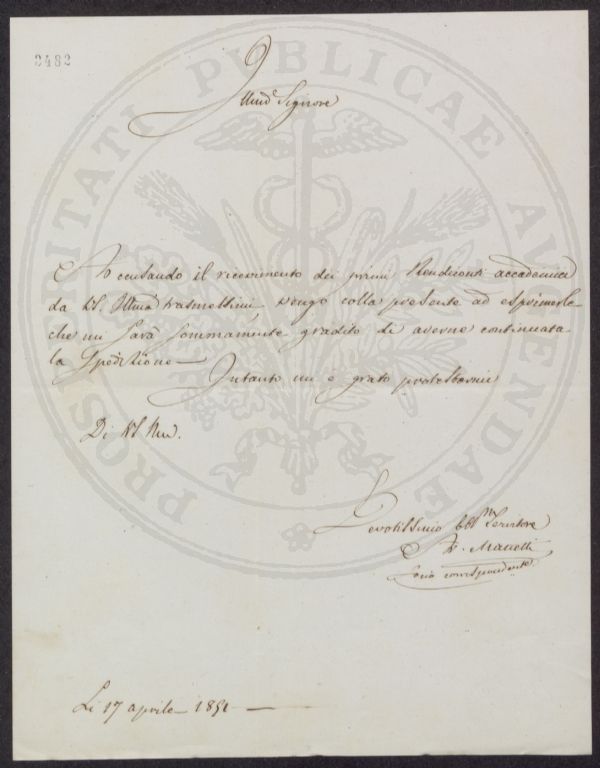 2482
PROSPERITATI PVBLICAE AVGENDAE
Illmo Signore
Accusando il ricevimento dei primi Rendiconti accademici
da VS. Illma trasmettimi, vengo colla presente ad esprimerle
che mi sarà sommamente gradito, di averne continuata
la Spedizione
Intanto mi è grato protestarmi
Di VS Illma.
Devotissimo Obbmo Servitore
Socio corrispondente
Li 17 aprile 1851